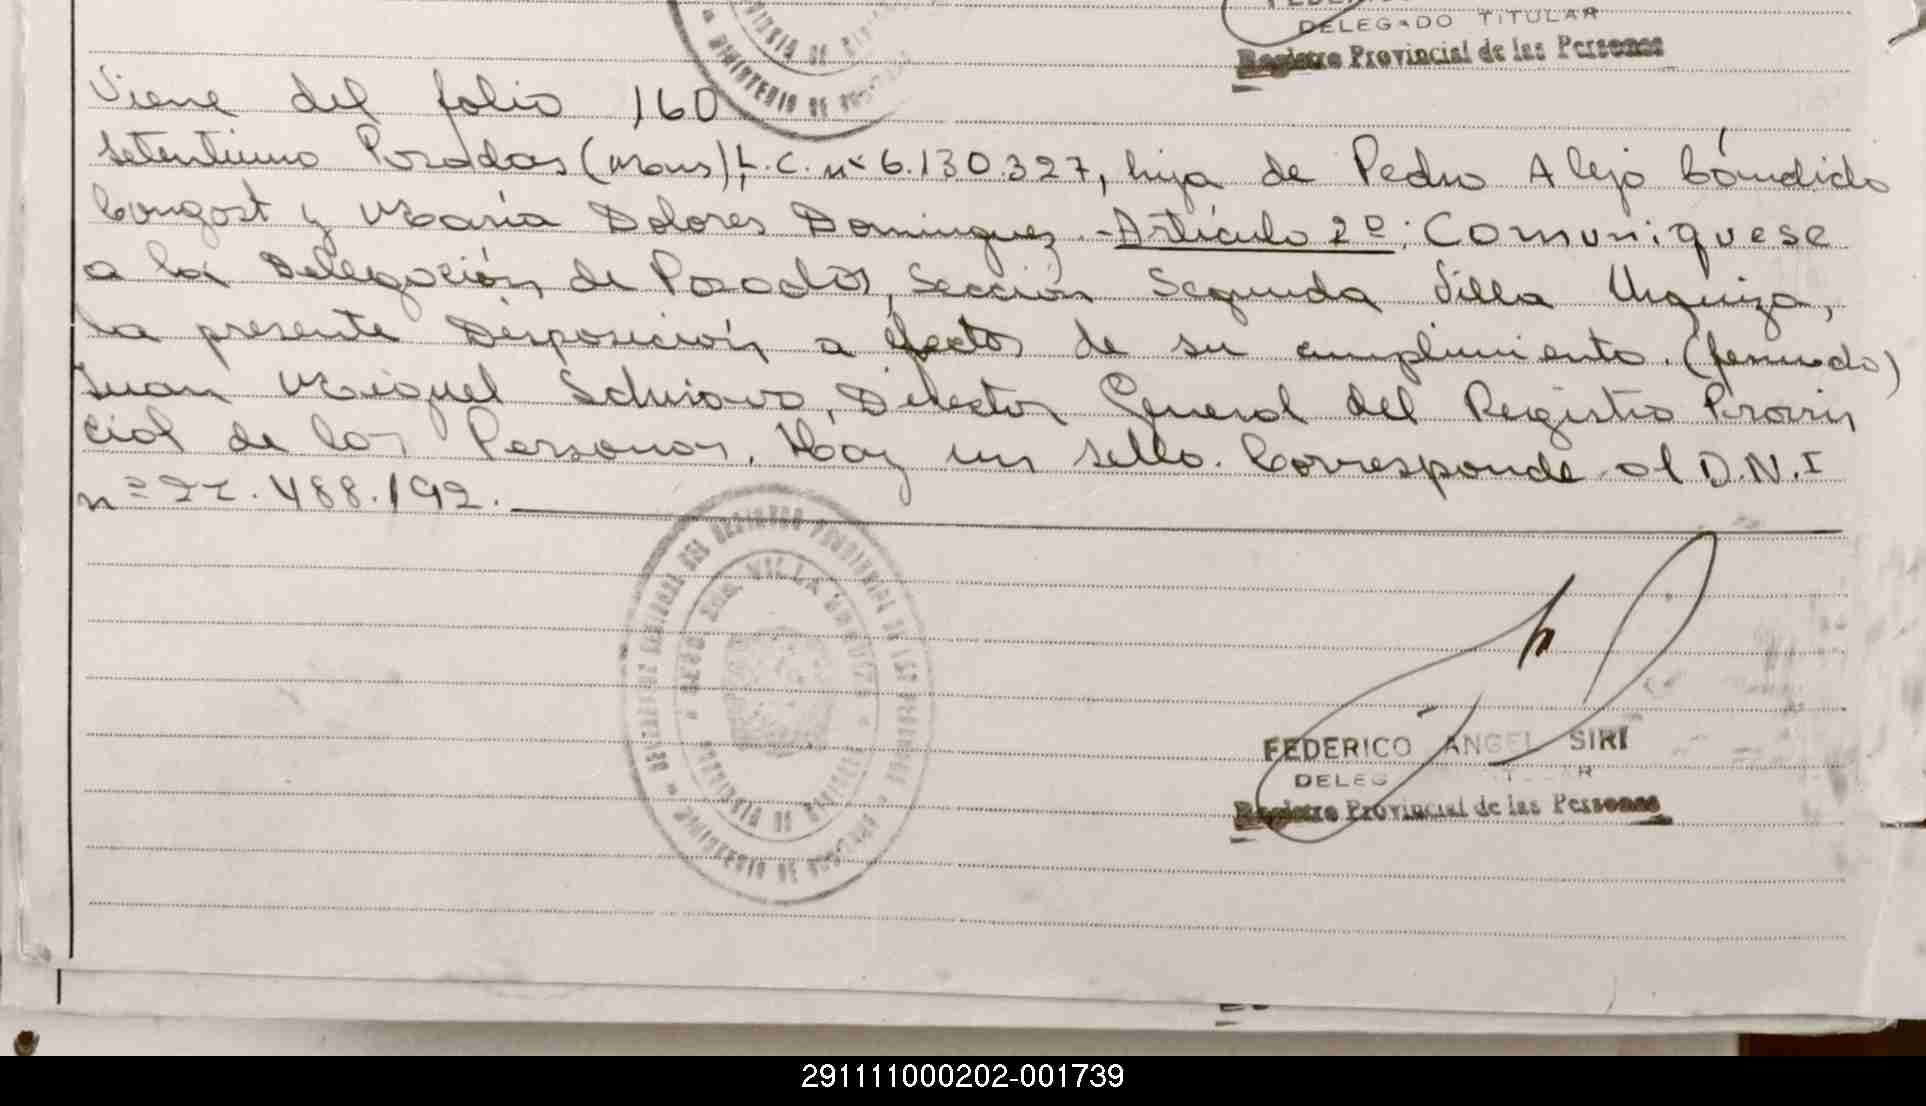 DELEGADO TITULAR
Registro Provincial de las Personas
MINISTERIO DE
Viene del folio 160
Posadas (Mnes), L.C. nº 6.130.327, hija de Pedro Alejo Cándido
Congost y María Dolores Dominguez.- Artículo 2º: Comuniquese
a la Delegación de Posadas, Sección Segunda Villa Urquiza,
la presente Disposición a efectos de su cumplimiento. (firmado)
Juan Miguel Schiavo, Director General del Registro Provin
cial de las Personas. Hay un sello. Corresponde al D.N.I
nº 22.488.192.
VILLA URQUIZA
PROVINCIA DE MISIONES
MINISTERIO DE
FEDERICO ANGEL SIRI
DELEG
Registro Provincial de las Personas
291111000202-001739